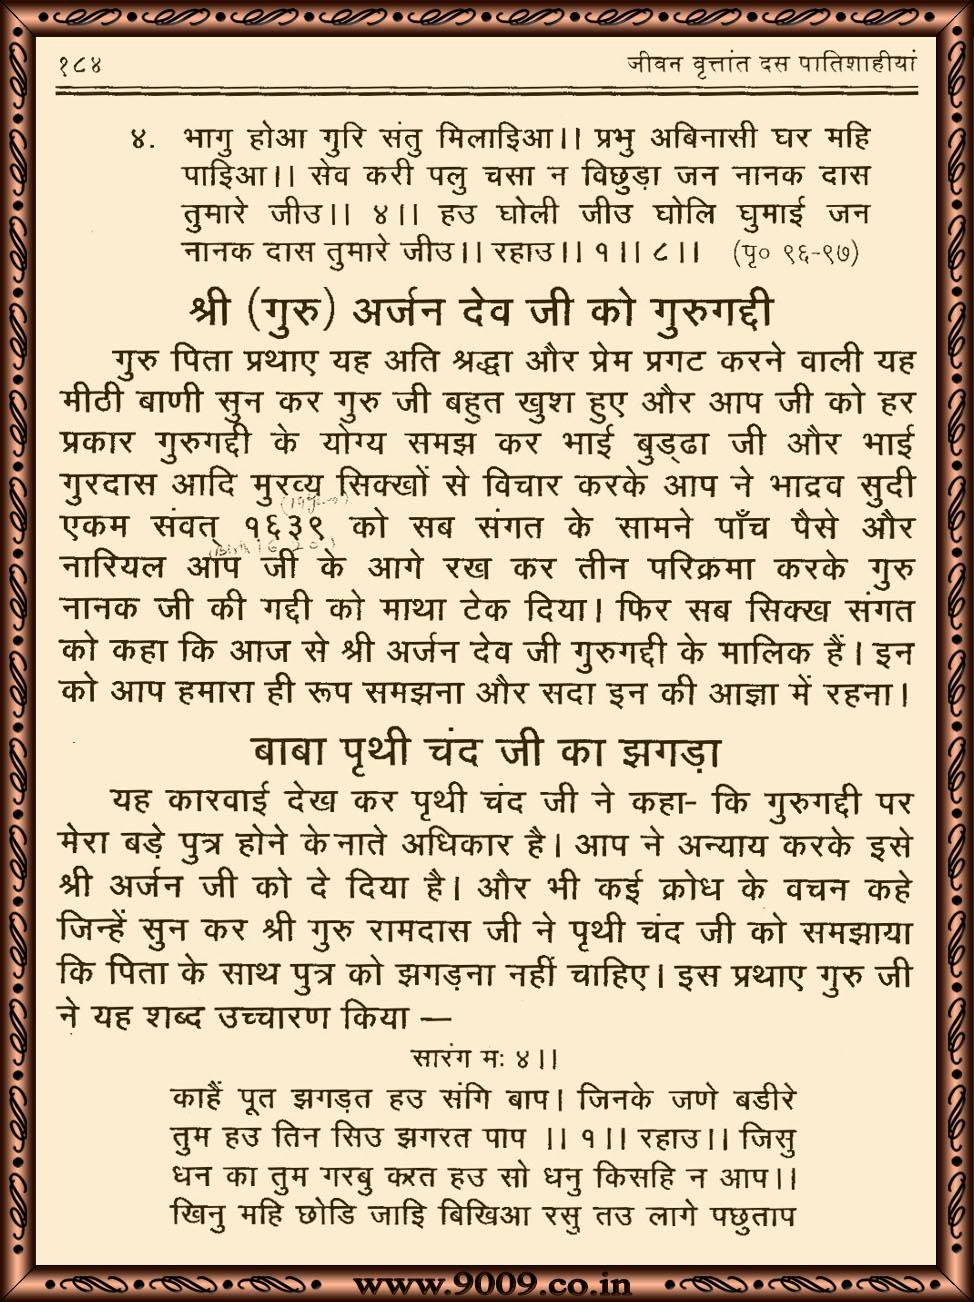 १८४ जीवन वृत्तांत दस पातिशाहीयां
४. भागु होआ गुरि संतु मिलाइिआ।। प्रभु अबिनासी घर महि
पाइिआ।। सेव करी पलु चसा न विछुड़ा जन नानक दास
तुमारे जीउ।। ४।। हउ घोली जीउ घोलि घुमाई जन
नानक दास तुमारे जीउ।। रहाउ।। १।। ८।। (पृ० ९६-९७)
श्री (गुरु) अर्जन देव जी को गुरुगद्दी
गुरु पिता प्रथाए यह अति श्रद्धा और प्रेम प्रगट करने वाली यह
मीठी बाणी सुन कर गुरु जी बहुत खुश हुए और आप जी को हर
प्रकार गुरुगद्दी के योग्य समझ कर भाई बुड्ढा जी और भाई
गुरदास आदि मुरव्य सिक्खों से विचार करके आप ने भाद्रव सुदी
एकम संवत् १६३९ को सब संगत के सामने पाँच पैसे और
नारियल आप जी के आगे रख कर तीन परिक्रमा करके गुरु
नानक जी की गद्दी को माथा टेक दिया। फिर सब सिक्ख संगत
को कहा कि आज से श्री अर्जन देव जी गुरुगद्दी के मालिक हैं। इन
को आप हमारा ही रूप समझना और सदा इन की आज्ञा में रहना।
बाबा पृथी चंद जी का झगड़ा
यह कारवाई देख कर पृथी चंद जी ने कहा- कि गुरुगद्दी पर
मेरा बड़े पुत्र होने के नाते अधिकार है। आप ने अन्याय करके इसे
श्री अर्जन जी को दे दिया है। और भी कई क्रोध के वचन कहे
जिन्हें सुन कर श्री गुरु रामदास जी ने पृथी चंद जी को समझाया
कि पिता के साथ पुत्र को झगड़ना नहीं चाहिए। इस प्रथाए गुरु जी
ने यह शब्द उच्चारण किया —
सारंग मः ४।।
काहैं पूत झगड़त हउ संगि बाप। जिनके जणे बडीरे
तुम हउ तिन सिउ झगरत पाप ।। १।। रहाउ।। जिसु
धन का तुम गरबु करत हउ सो धनु किसहि न आप।।
खिनु महि छोडि जाइि बिखिआ रसु तउ लागे पछुताप
www.9009.co.in